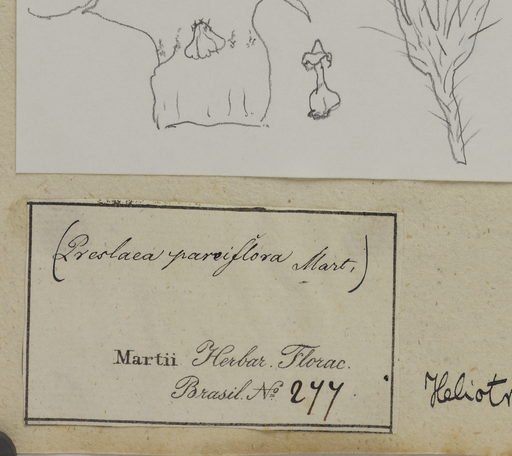 (Preslaea parviflora Mart.)
Martii Herbar. Florac.
Brasil. No 277
Heliotr